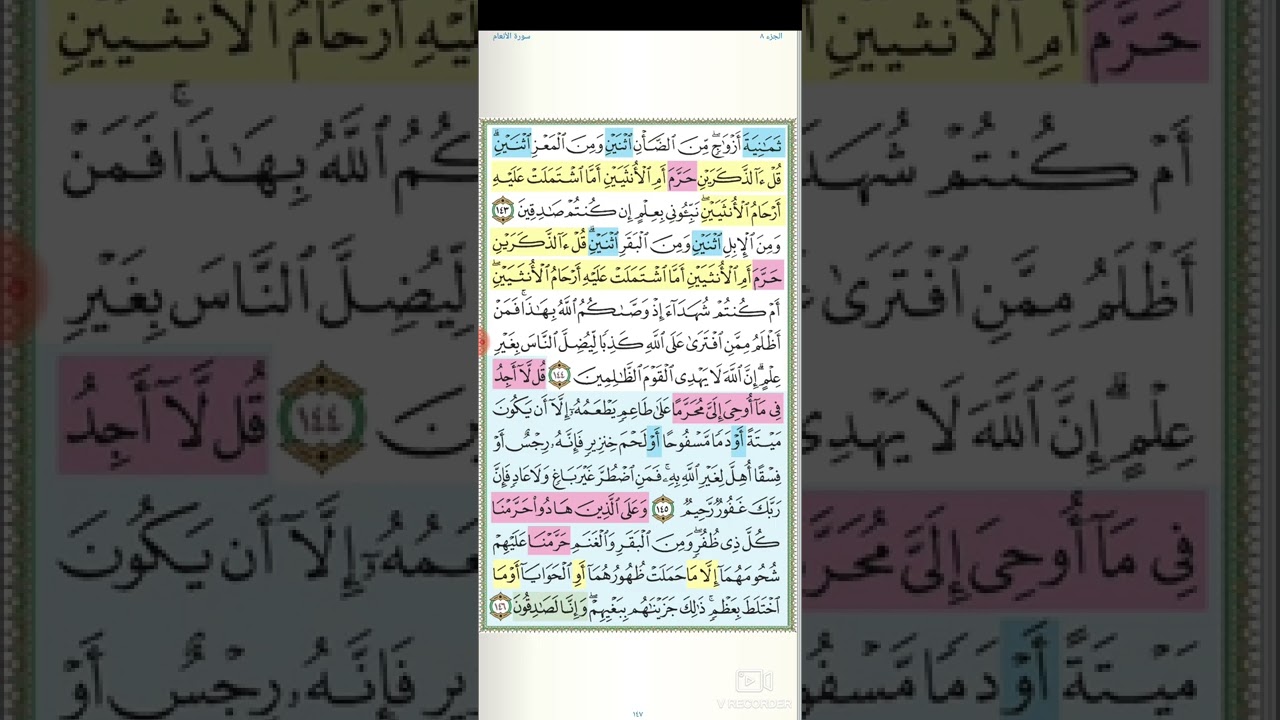 الجزء ٨
سورة الأنعام
ثَمَٰنِيَةَ أَزْوَٰجٍۖ مِّنَ ٱلضَّأْنِ ٱثْنَيْنِ وَمِنَ ٱلْمَعْزِ ٱثْنَيْنِۗ
قُلْ ءَآلذَّكَرَيْنِ حَرَّمَ أَمِ ٱلْأُنثَيَيْنِ أَمَّا ٱشْتَمَلَتْ عَلَيْهِ
أَرْحَامُ ٱلْأُنثَيَيْنِۖ نَبِّـُٔونِى بِعِلْمٍ إِن كُنتُمْ صَٰدِقِينَ ١٤٣
وَمِنَ ٱلْإِبِلِ ٱثْنَيْنِ وَمِنَ ٱلْبَقَرِ ٱثْنَيْنِۗ قُلْ ءَآلذَّكَرَيْنِ
حَرَّمَ أَمِ ٱلْأُنثَيَيْنِ أَمَّا ٱشْتَمَلَتْ عَلَيْهِ أَرْحَامُ ٱلْأُنثَيَيْنِۖ
أَمْ كُنتُمْ شُهَدَآءَ إِذْ وَصَّىٰكُمُ ٱللَّهُ بِهَٰذَاۚ فَمَنْ
أَظْلَمُ مِمَّنِ ٱفْتَرَىٰ عَلَى ٱللَّهِ كَذِبًا لِّيُضِلَّ ٱلنَّاسَ بِغَيْرِ
عِلْمٍۗ إِنَّ ٱللَّهَ لَا يَهْدِى ٱلْقَوْمَ ٱلظَّٰلِمِينَ ١٤٤ قُل لَّآ أَجِدُ
فِى مَآ أُوحِىَ إِلَىَّ مُحَرَّمًا عَلَىٰ طَاعِمٍ يَطْعَمُهُۥٓ إِلَّآ أَن يَكُونَ
مَيْتَةً أَوْ دَمًا مَّسْفُوحًا أَوْ لَحْمَ خِنزِيرٍ فَإِنَّهُۥ رِجْسٌ أَوْ
فِسْقًا أُهِلَّ لِغَيْرِ ٱللَّهِ بِهِۦۚ فَمَنِ ٱضْطُرَّ غَيْرَ بَاغٍ وَلَا عَادٍ فَإِنَّ
رَبَّكَ غَفُورٌ رَّحِيمٌ ١٤٥ وَعَلَى ٱلَّذِينَ هَادُوا۟ حَرَّمْنَا
كُلَّ ذِى ظُفُرٍۖ وَمِنَ ٱلْبَقَرِ وَٱلْغَنَمِ حَرَّمْنَا عَلَيْهِمْ
شُحُومَهُمَآ إِلَّا مَا حَمَلَتْ ظُهُورُهُمَآ أَوِ ٱلْحَوَايَآ أَوْ مَا
ٱخْتَلَطَ بِعَظْمٍۚ ذَٰلِكَ جَزَيْنَٰهُم بِبَغْيِهِمْۖ وَإِنَّا لَصَٰدِقُونَ ١٤٦
V RECORDER
١٤٧